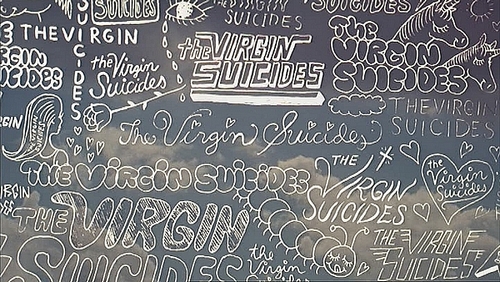 SUICIDES
SUICIDES
THE VIRGIN
SUICIDES
the Virgin
Suicides
the VIRGIN
SUICIDES
the
VIRGIN
SUICIDES
THE VIRGIN
SUICIDES
The Virgin Suicides
THE VIRGIN SUICIDES
THE
VIRGIN
SUICIDES
the
Virgin
Suicides
THE VIRGIN
SUICIDES
the
Virgin
THE VIRGIN
SUICIDES